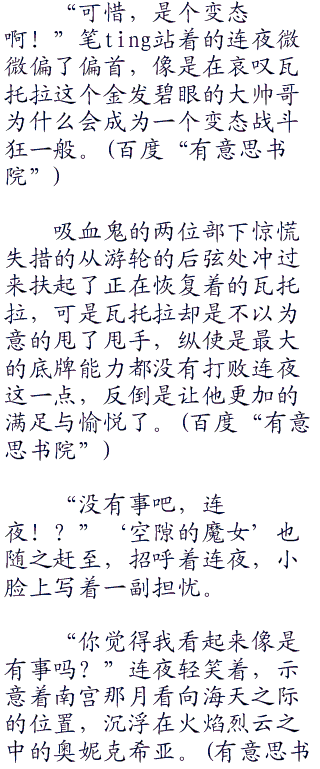 “可惜，是个变态
啊！”笔ting站着的连夜微
微偏了偏首，像是在哀叹瓦
托拉这个金发碧眼的大帅哥
为什么会成为一个变态战斗
狂一般。(百度“有意思书
院”)
吸血鬼的两位部下惊慌
失措的从游轮的后弦处冲过
来扶起了正在恢复着的瓦托
拉，可是瓦托拉却是不以为
意的甩了甩手，纵使是最大
的底牌能力都没有打败连夜
这一点，反倒是让他更加的
满足与愉悦了。(百度“有意
思书院”)
“没有事吧，连
夜！？”‘空隙的魔女’也
随之赶至，招呼着连夜，小
脸上写着一副担忧。
“你觉得我看起来像是
有事吗？”连夜轻笑着，示
意着南宫那月看向海天之际
的位置，沉浮在火焰烈云之
中的奥妮克希亚。(有意思书